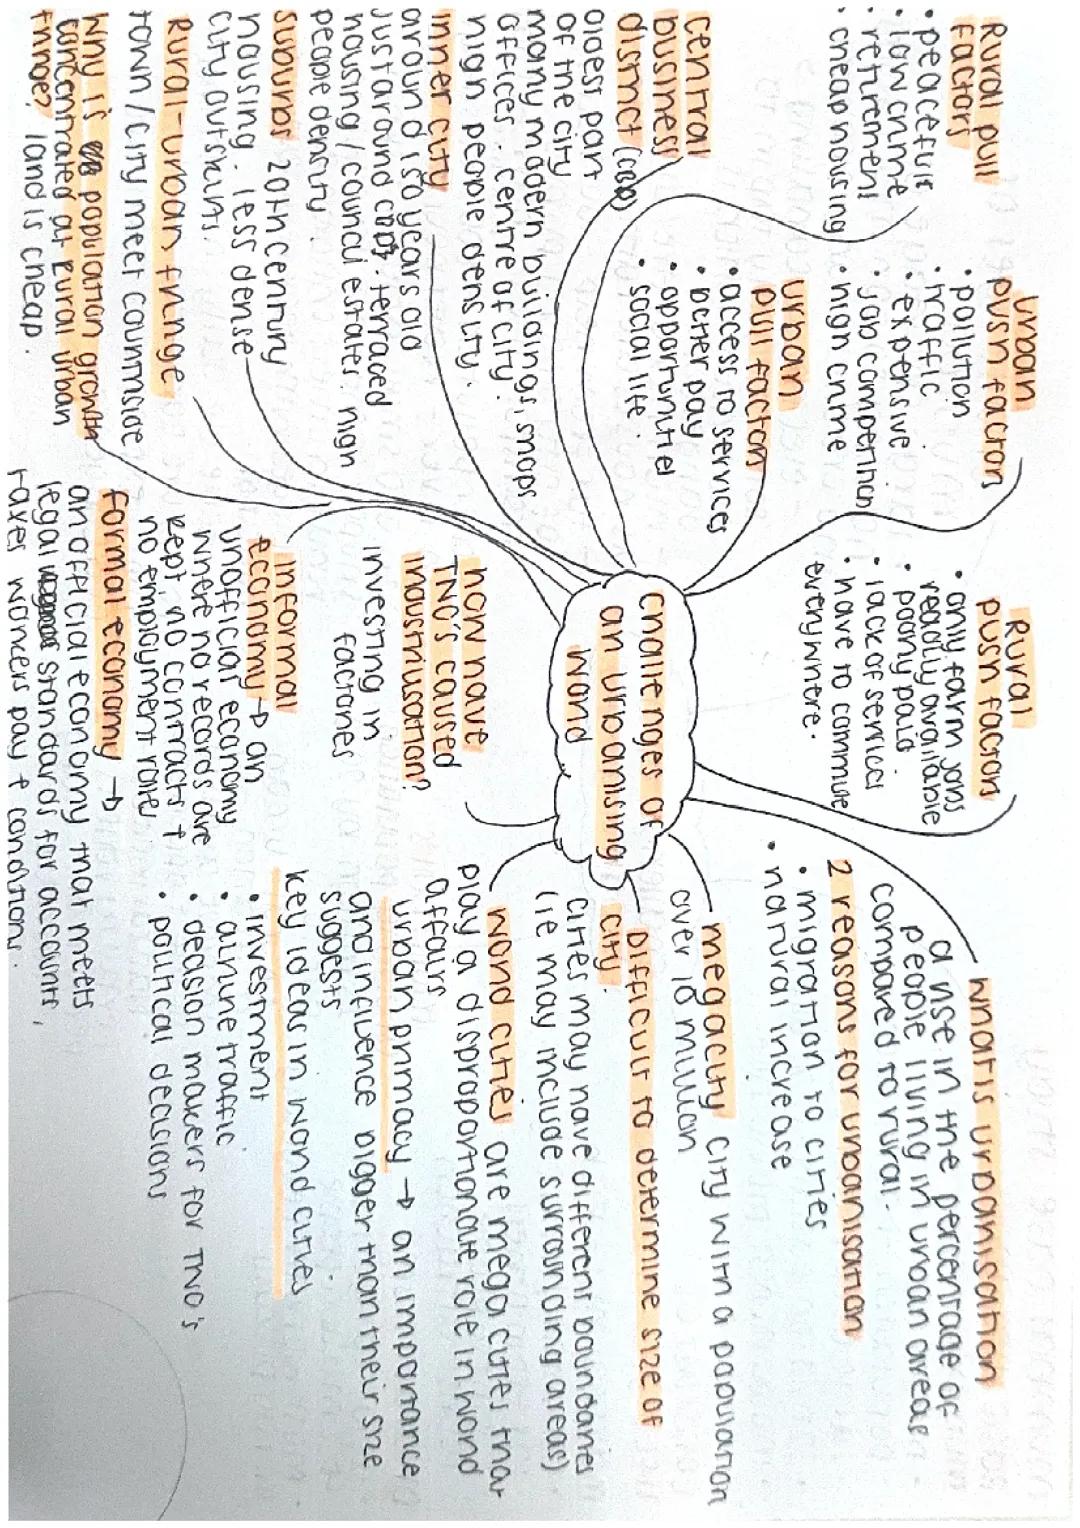 Rural pull
factors
• peacefull
• low crime
• retirement
• cheap housing
Urban
push factors
• pollution
• traffic
• expensive
• job competition
• high crime
Rural
push factors
• only farm jobs
readily available
• poorly paid
• lack of services
• have to commute
everywhere.
Urban
pull factors
• access to services
• better pay
• opportunities
• social life.
central
business
district (CBD)
oldest part
of the city
many modern buildings, shops
offices. centre of city.
high people density.
inner city
around 150 years old
just around CBD. terraced
housing / council estates. high
people density.
suburbs 20th century
housing. less dense
city outskirts.
Rural-urban fringe
town/city meet countryside
Why is population growth
concentrated at rural urban
fringe? land is cheap.
challenges of
an urbanising
world
what is urbanisation
a rise in the percentage of
people living in urban areas
compared to rural.
2 reasons for urbanisation
• migration to cities
• natural increase
megacity city with a population
over 10 million
Difficult to determine size of
city.
cities may have different boundaries
(ie may include surrounding areas)
world cities are mega cities that
play a disproportionate role in world
affairs
urban primacy → an importance
and influence bigger than their size
suggests
key ideas in world cities
• investment
• airline traffic
• decision makers for TNO's
• political decisions
how have
TNC's caused
industrialisation?
investing in
factories
informal
economy → an
unofficial economy
where no records are
kept no contracts +
no employment rates
formal economy →
an official economy that meets
legal standards for accounts,
taxes workers pay + conditions.